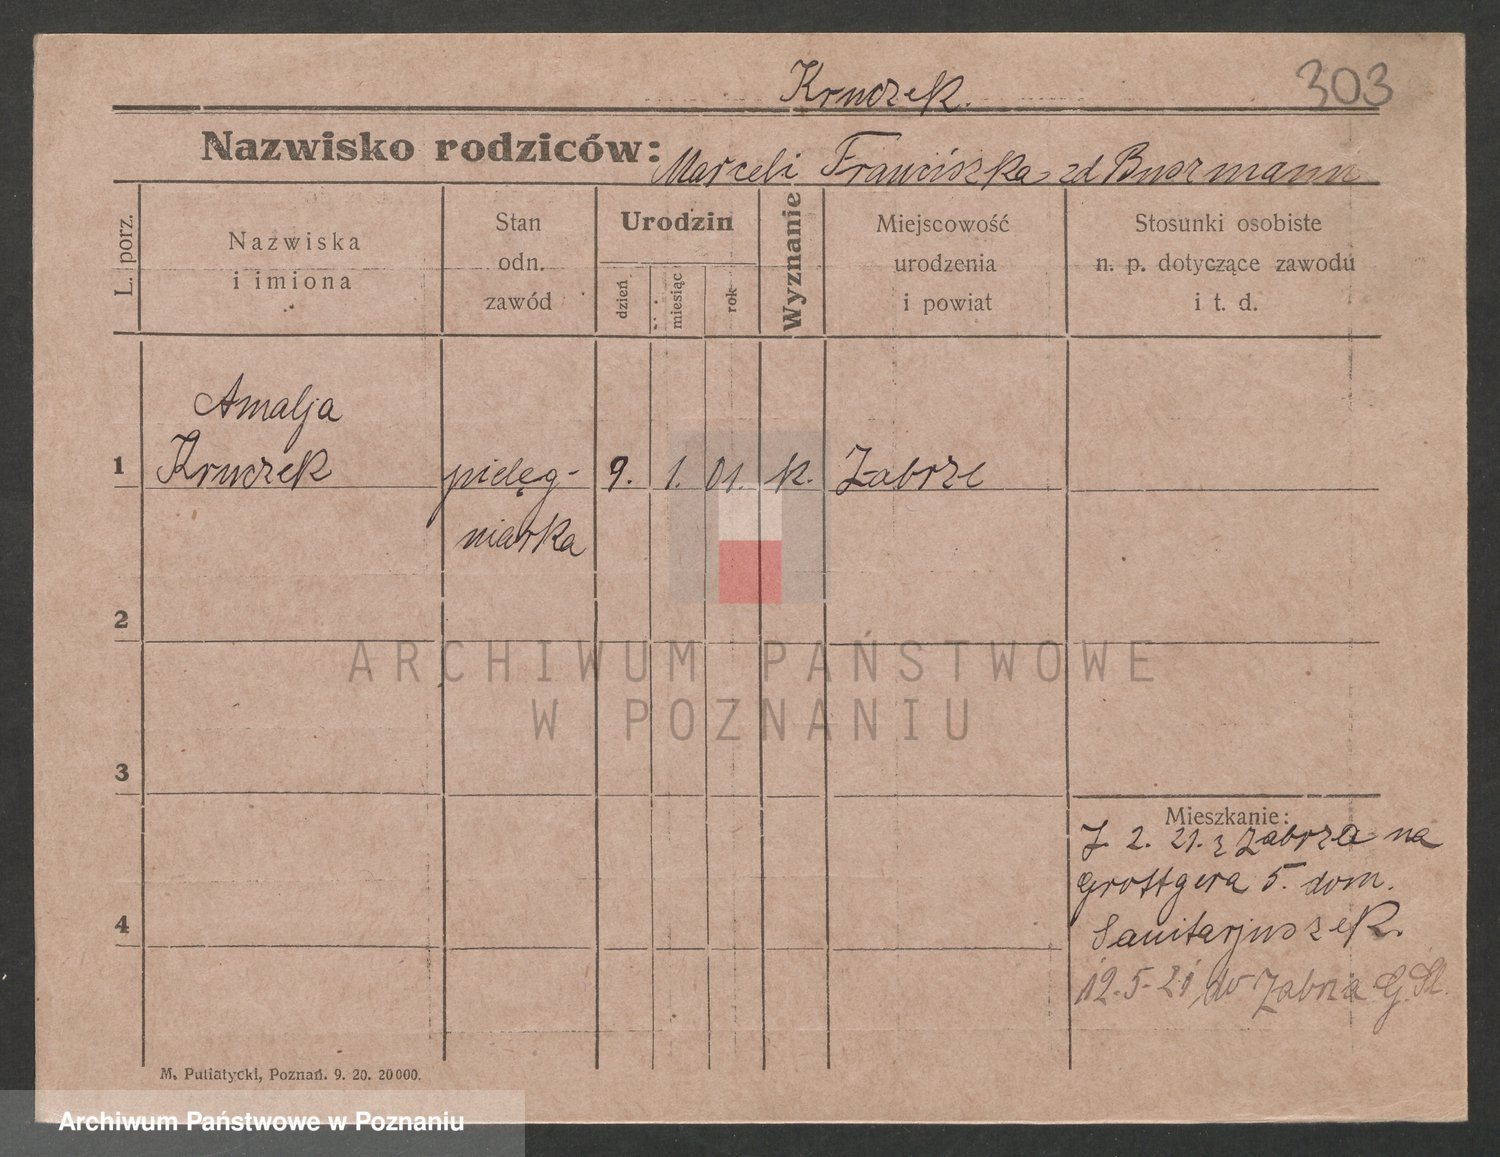 Kruczek.
303
Nazwisko rodziców: Marceli Franciszka zd Buszmann
L. porz.
Nazwiska
i imiona
Stan
odn.
zawód
Urodzin
dzień
miesiąc
rok
Wyznanie
Miejscowość
urodzenia
i powiat
Stosunki osobiste
n. p. dotyczące zawodu
i t. d.
1
Amalja
Kruczek
pielęg-
niarka
9. 1. 01. k. Zabrze
2
3
4
Mieszkanie:
7. 2. 21. z Zabrza na
Grottgera 5. dom.
Sanitarjuszek.
12.5-21 do Zabrza G. Śl.
M. Putiatycki, Poznań. 9. 20. 20000.
ARCHIWUM PAŃSTWOWE
W POZNANIU
Archiwum Państwowe w Poznaniu